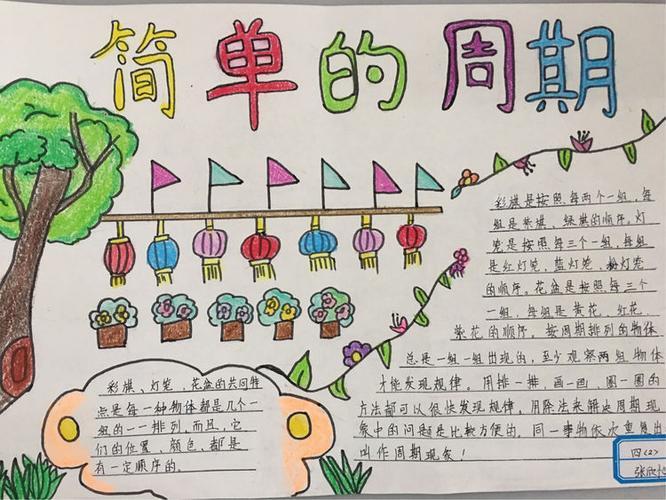 简单的周期
彩旗是按照每两个一组,每
组是紫旗、绿旗的顺序。灯
笼是按照每三个一组,每组
是红灯笼、蓝灯笼、粉灯笼
的顺序。花盆是按照每三个
一组,每组是黄花、红花、
紫花的顺序。按周期排列的物体
总是一组一组出现的,至少观察两组物体
才能发现规律。用排一排、画一画、圈一圈的
方法都可以很快发现规律。用除法来解决周期现
象中的问题是比较方便的。同一事物依次重复出
叫作周期现象!
彩旗、灯笼、花盆的共同特
点是每一种物体都是几个一
组的一一排列,而且,它
们的位置、颜色、都是
有一定顺序的。
四(2)
张欣